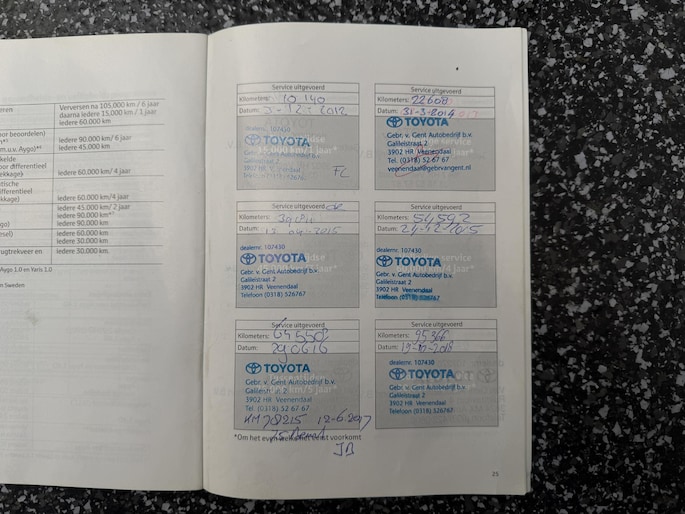 Verversen na 105,000 km / 6 jaar
daarna iedere 15,000 km / 1 jaar
iedere 60.000 km
oor beoordelen)
iedere 90.000 km/6 jaar
m.u.v. Aygo)
iedere 45.000 km
kelde
oor differentieel
ekkage)
iedere 60.000 km/4 jaar
tische
differentieel
ekkage)
iedere 60.000 km/4 jaar
iedere 45.000 km/ 2 jaar
iedere 90.000 km
iedere 90.000 km
iedere 60.000 km
iedere 30.000 km
ugtrekveer en
iedere 30,000 km.
Aygo 1.0 en Yaris 1.0
n Sweden
Service uitgevoerd
Kilometers: 10 140
Datum: 3-12-2012
dealernr. 107430
TOYOTA
FC
Service uitgevoerd
Kilometers: 22608
Datum: 31-3-2014
TOYOTA
Gebr. v. Gent Autobedrijf b.v.
Galileistraat 2
3902 HR Veenendaal
Tel. (0318) 52 67 67
veenendaal@gebrvangent.nl
Service uitgevoerd
Kilometers:
Datum:
dealernr. 107430
TOYOTA
Gebr. v. Gent Autobedrijf b.v.
Galileistraat 2
3902 HR Veenendaal
Telefoon (0318) 526767
Service uitgevoerd
Kilometers: 54592
Datum: 24-12-2015
dealernr. 107430
TOYOTA
Gebr. v. Gent Autobedrijf b.v.
Galileistraat 2
3902 HR Veenendaal
Telefoon (0318) 526767
Service uitgevoerd
Kilometers: 64550
Datum: 290616
TOYOTA
Gebr. v. Gent Autobedrijf b.v.
Galileistraat 2
3902 HR Veenendaal
Tel. (0318) 52 67 67
KM 78215 12-6-2017
Service uitgevoerd
Kilometers: 95366
Datum:
dealernr. 107430
TOYOTA
Gebr. v. Gent Autobedrijf b.v.
Galileistraat 2
3902 HR Veenendaal
Telefoon (0318) 526767
*Om het even welke het eerst voorkomt
JB
25